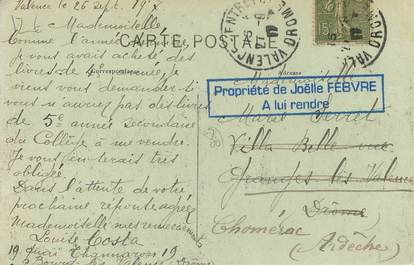 Valence le 26 sept. 19
Mademoiselle
Comme l'année
je vous avais acheté des
livres de année, je
viens vous demander si
vous n'auriez pas des livres
de 5e année secondaire
du Collège à me vendre.
Je vous en serais très
obligée.
Dans l'attente de votre
prochaine réponse agréez
Mademoiselle mes remerciements
Louise Costa
19 quai Thannaron 19
Bourg les Valence Drôme
CARTE POSTALE
Correspondance
Adresse
VALENCE
DROME
15
Propriété de Joëlle FEBVRE
A lui rendre
Mademoiselle
Marie
Villa Belle vue
Granges les Valence
Drôme
Chomérac
(Ardèche)